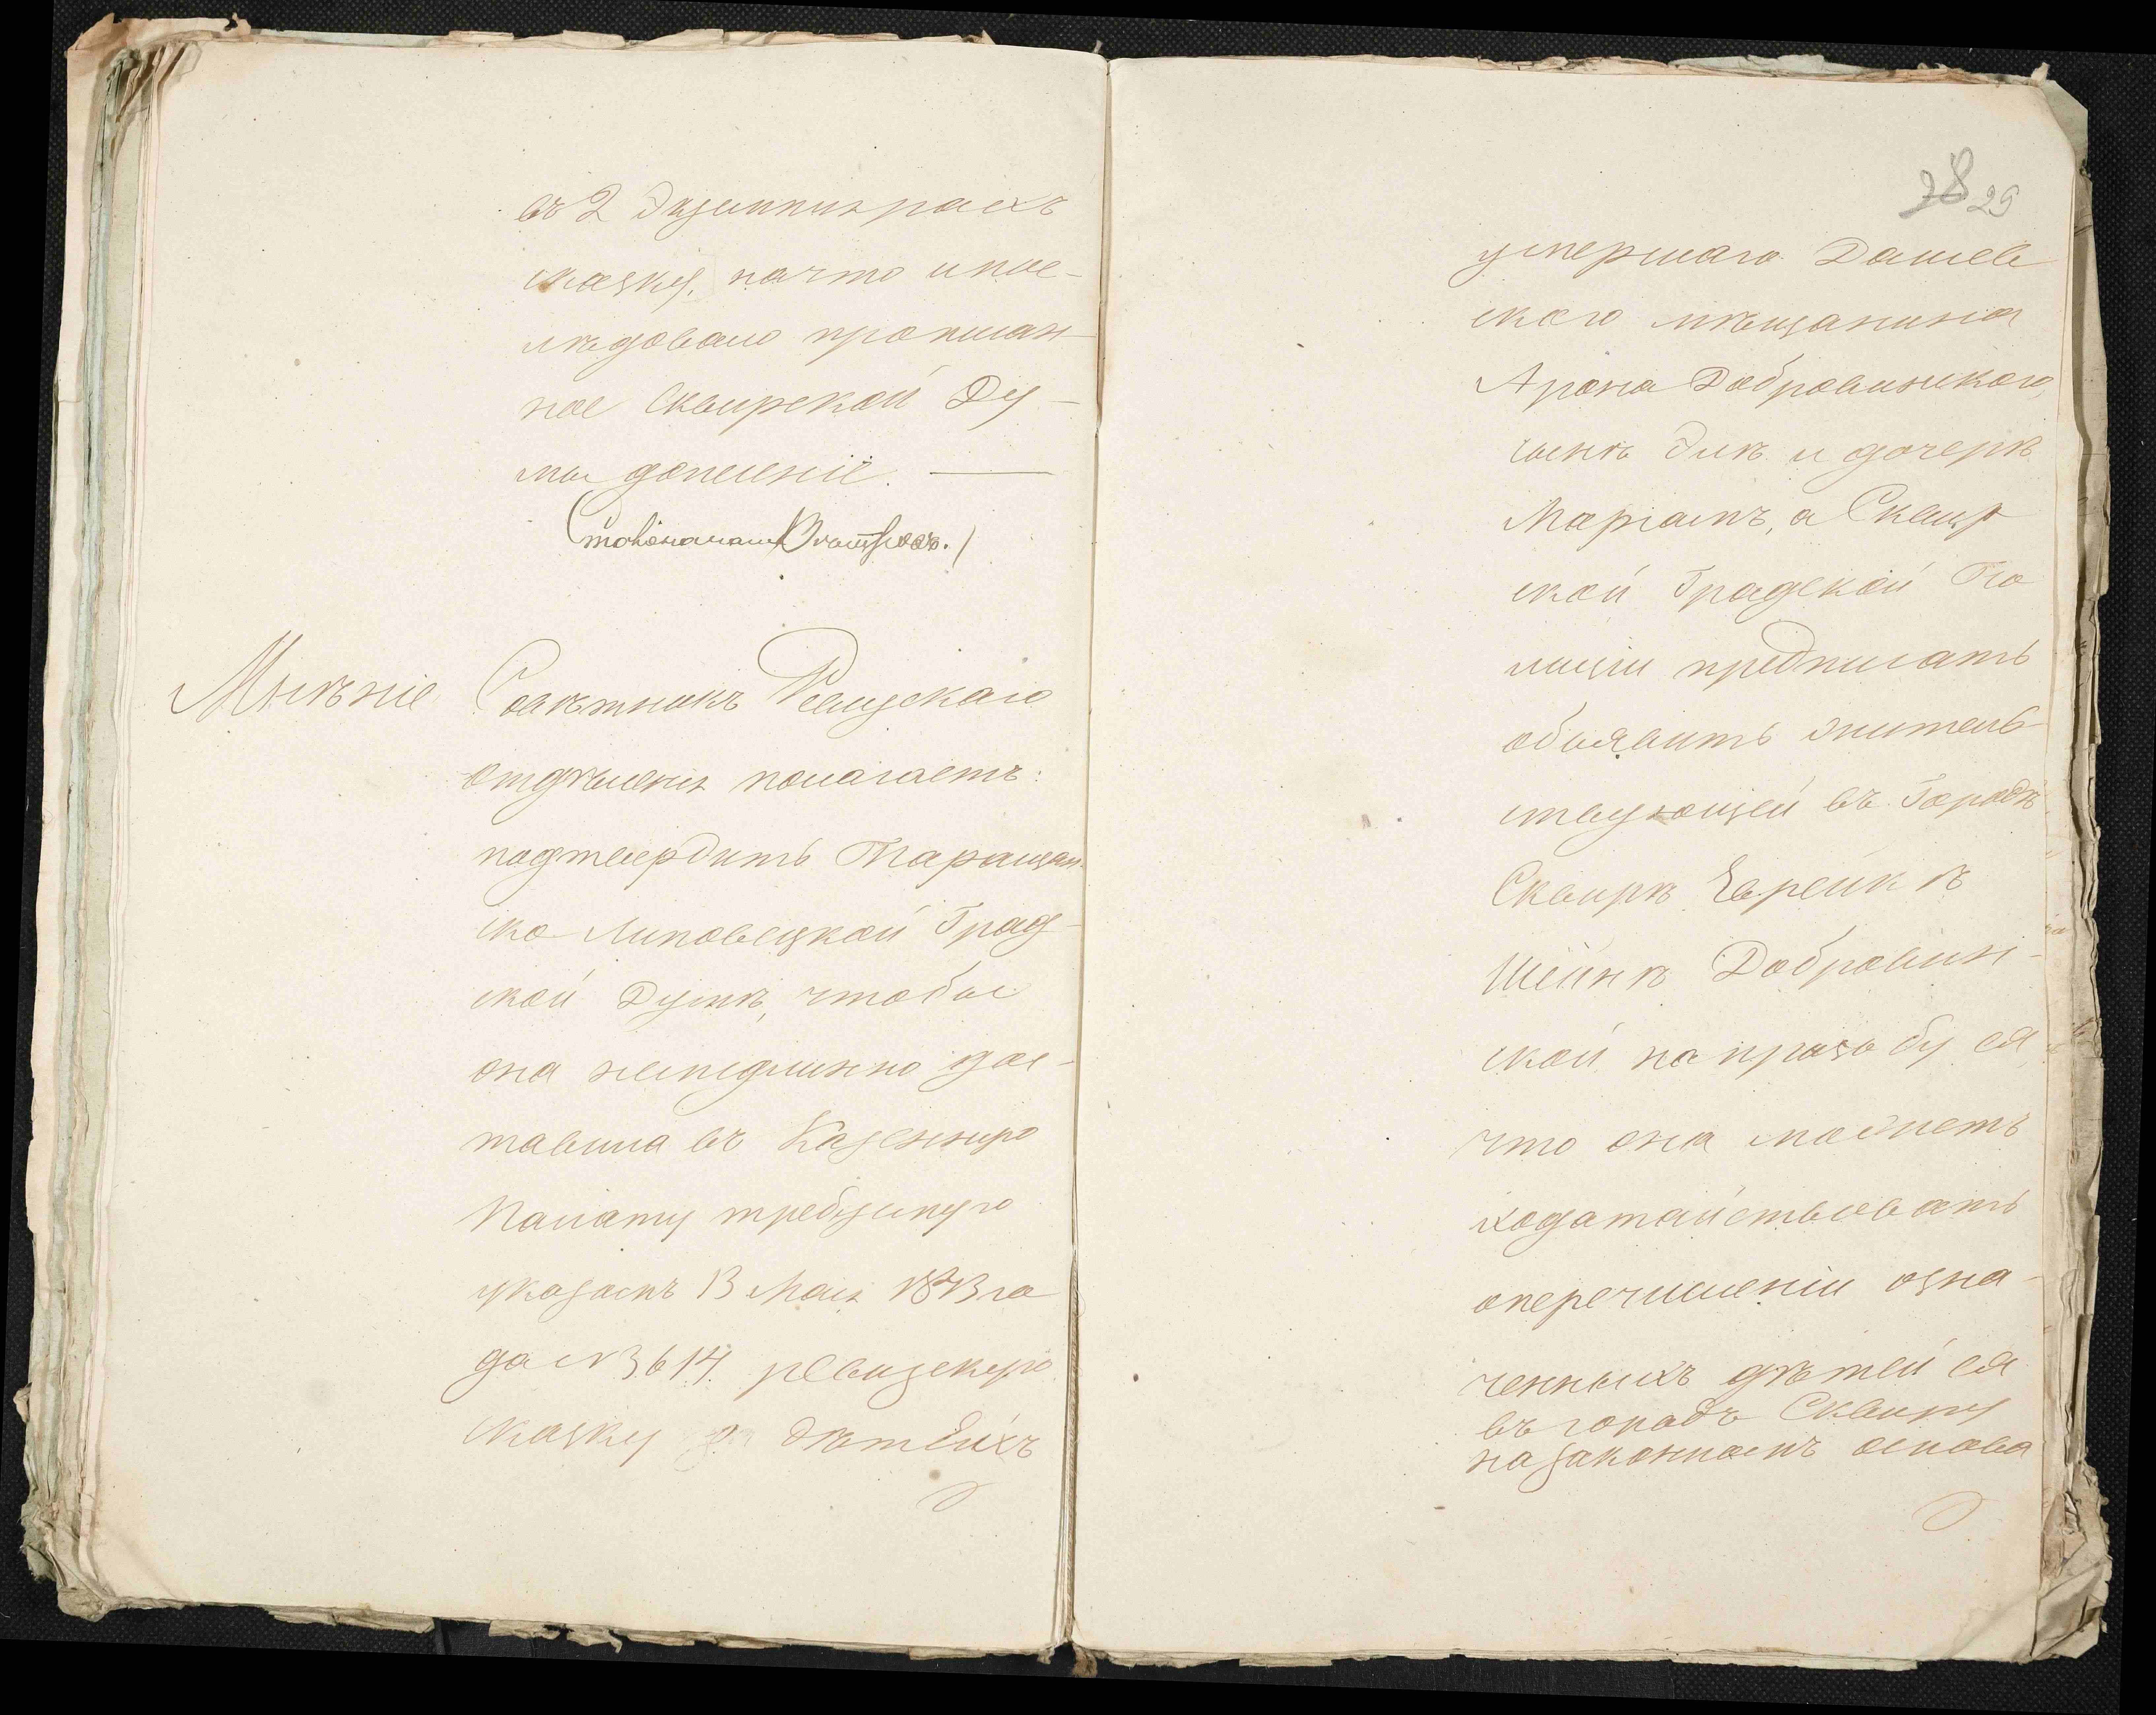 въ 2 экземплярахъ
сказку, на что и пос-
лѣдовало прописан-
ное Сквирской Ду-
мы донесеніе. —
Столоначал
Мнѣніе Совѣтникъ Ревизскаго
Отдѣленія полагаетъ:
подтвердить Таращан-
ско Липовецкой Град-
ской Думѣ, чтобы
она немедленно дос-
тавила въ Казенную
Палату требуемую
указомъ 13 Мая 1873 го
да № 3614 ревизскую
сказку о дѣтяхъ
28 29
умершаго Дашев
ского мѣщанина
Арона Добровинского,
сынѣ Элѣ и дочерѣ
Маріамъ, а Сквир
ской Градской По
лиціи предписать
объявить жительс
твующей въ Городѣ
Сквирѣ Еврейкѣ
Шейнѣ Добровин-
ской, на прозьбу ея,
что она можетъ
ходатайствовать
оперечисленіи озна-
ченныхъ дѣтей ея
въ городъ Сквиру
на законномъ основа